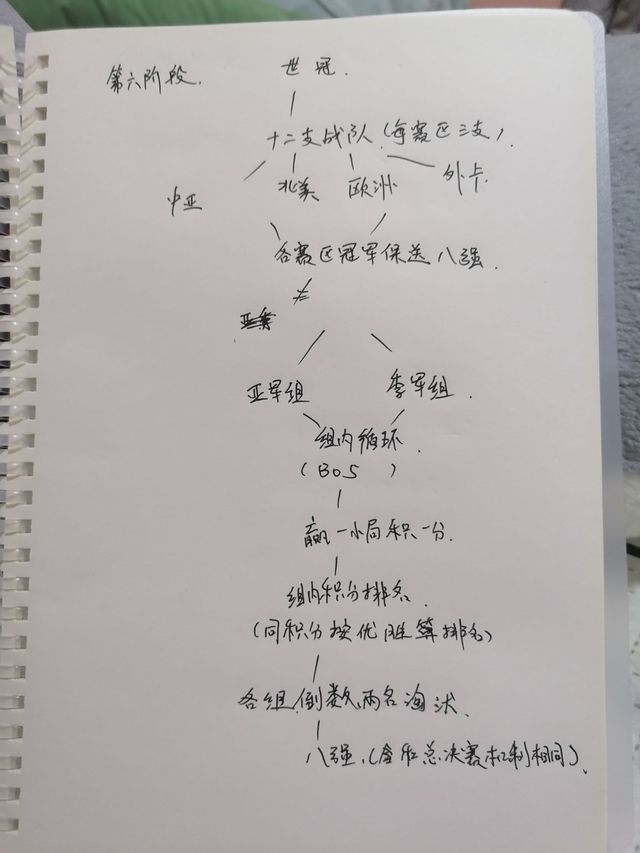 第六阶段.
世冠.
十二支战队(每赛区三支).
中亚 北美 欧洲 外卡.
各赛区冠军保送八强.
亚军组 季军组.
组内循环.
(BO5 )
赢一小局积一分.
组内积分排名.
(同积分按优胜算排名)
各组倒数两名淘汰.
八强.(含和总决赛机制相同).